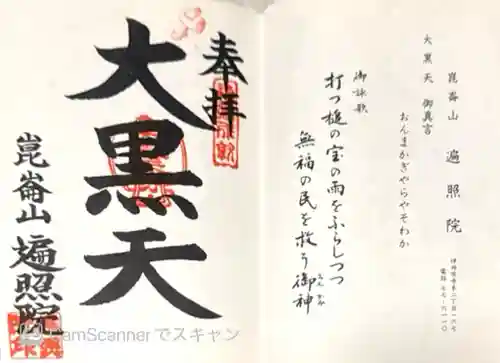 奉拝
大黒天
崑崙山 遍照院
崑崙山 遍照院
大黒天 御真言
おんまかぎゃらやそわか
御詠歌
打つ槌の宝の雨をふらしつつ
無福の民を救う御神
CamScanner でスキャン